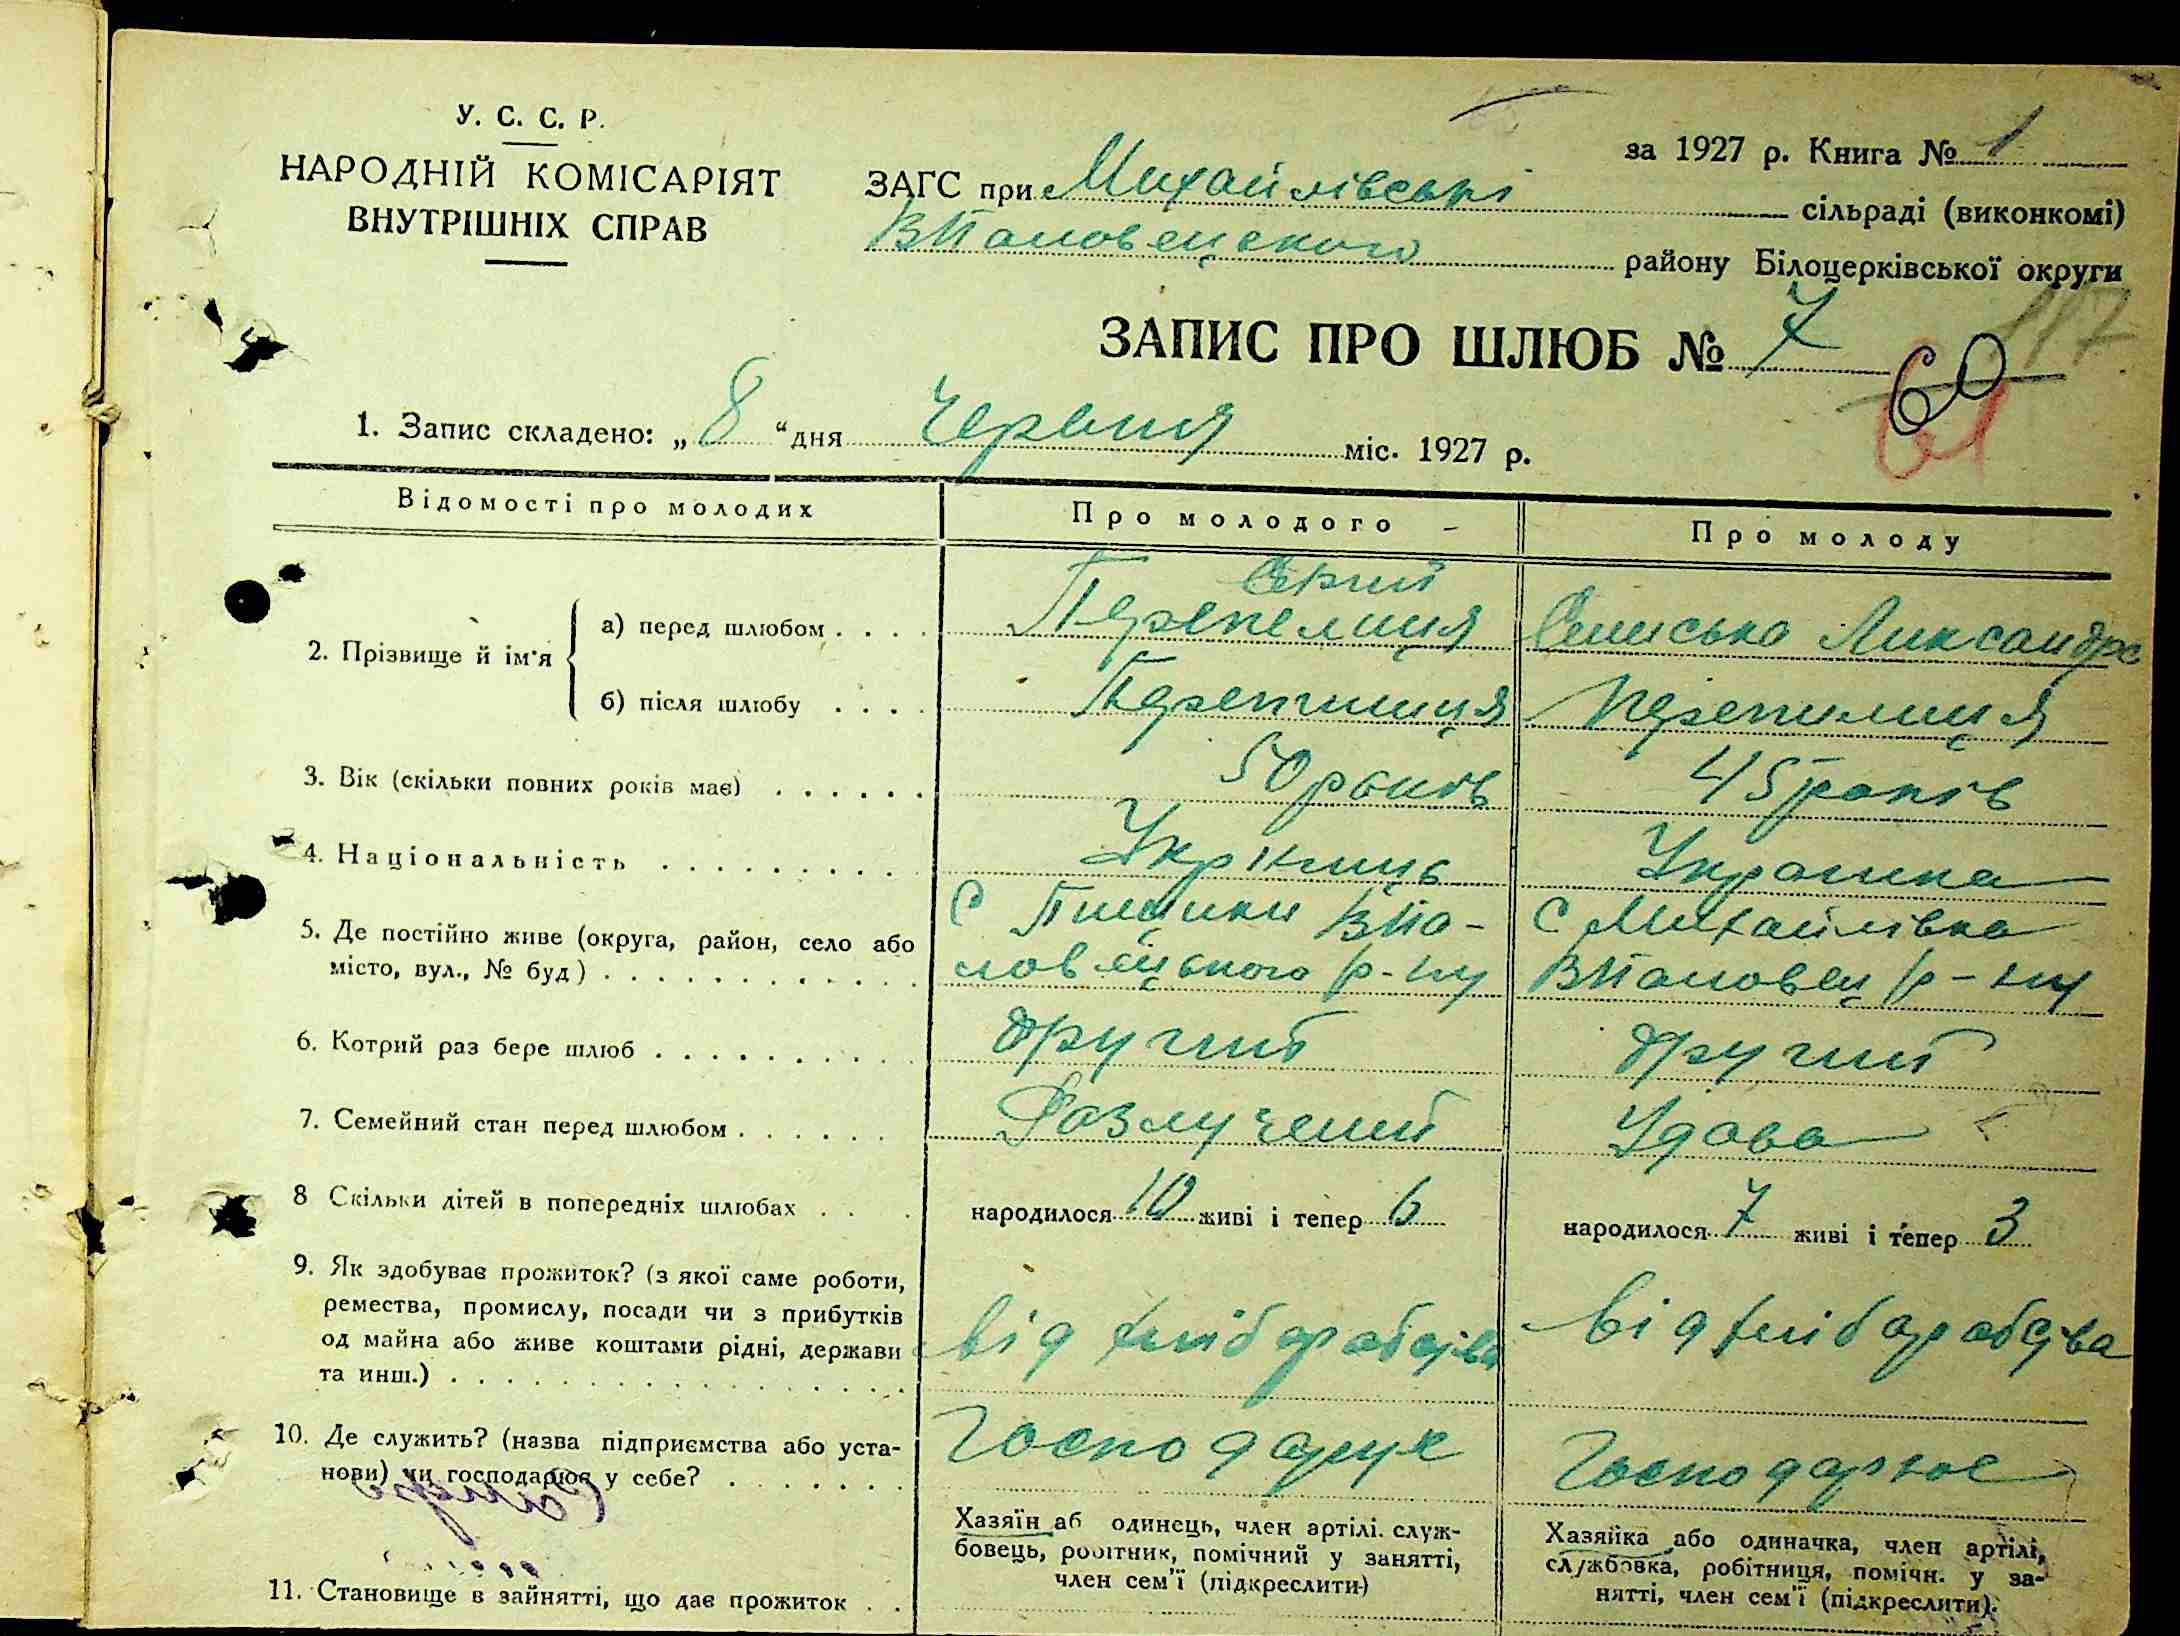 У. С. С. Р.
НАРОДНІЙ КОМІСАРІЯТ
ВНУТРІШНІХ СПРАВ
за 1927 р. Книга № 1
ЗАГС при Михайлівські сільраді (виконкомі)
ВПоловецкого району Білоцерківської округи
117
ЗАПИС ПРО ШЛЮБ № 7
60
61
1. Запис складено: „ 8 “ дня Червня міс. 1927 р.
Відомості про молодих Про молодого Про молоду
2. Прізвище й ім'я
а) перед шлюбом . . . . Перепелиця Сергий Александра
б) після шлюбу . . . . Перепилиця Перепилиця
3. Вік (скільки повних років має) . . . . . . 50 років 45 років
4. Національність . . . . . . . . . Украинка
5. Де постійно живе (округа, район, село або С Пищики ВПо- С Михайлівка
місто, вул., № буд) . . . . . . . . . . . . . ловецького р-ну ВПоловец р-ну
6. Котрий раз бере шлюб . . . . . . . . . . другий другий
7. Семейний стан перед шлюбом . . . . . . Розлучений Удова
8 Скільки дітей в попередніх шлюбах . . . народилося 10 живі і тепер 6 народилося 7 живі і тепер 3
9. Як здобуває прожиток? (з якої саме роботи,
ремества, промислу, посади чи з прибутків
од майна або живе коштами рідні, держави від хліборобства від хліборобства
та инш.) . . . . . . . . . . . . . . . . .
10. Де служить? (назва підприємства або уста- Господарює Господарює
нови) чи господарює у себе? . . . . . . .
Хазяїн аб одинець, член артілі. служ- Хазяйка або одиначка, член артілі,
бовець, робітник, помічний у занятті, службовка, робітниця, помічн. у за-
член сем'ї (підкреслити) нятті, член сем'ї (підкреслити).
11. Становище в зайнятті, що дає прожиток . .